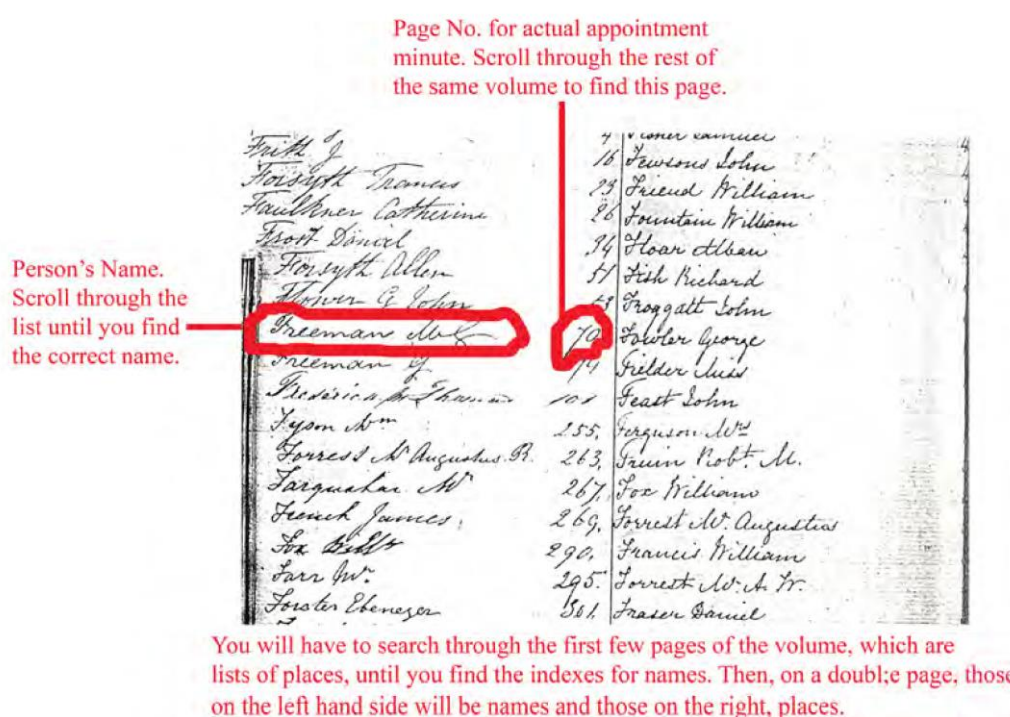 Page No. for actual appointment
minute. Scroll through the rest of
the same volume to find this page.
Person's Name.
Scroll through the
list until you find
the correct name.
Frith J
Forsyth Francis
Faulkner Catherine
Frost Daniel
Forsyth Allen
Flower G John
Freeman
Freeman
Fyson Wm
Forrest Mr Augustus R. 
Farquahar Mr
French James,
Fox
Farr Mr.
Forster Ebenezer
4
16 Fewsons John
23 Friend William
26 Fountain William
34 Hoar Alban
51 Fish Richard
Froggatt John
79 Fowler George
Fielder Miss
101 Feast John
255, Ferguson Mrs
263, Fruin Robt. M.
267, Fox William
269, Forrest Mr. Augustus
290, Francis William
295. Forrest Mr. A. W.
301. Fraser Daniel
You will have to search through the first few pages of the volume, which are
lists of places, until you find the indexes for names. Then, on a doubl;e page, those
on the left hand side will be names and those on the right, places.